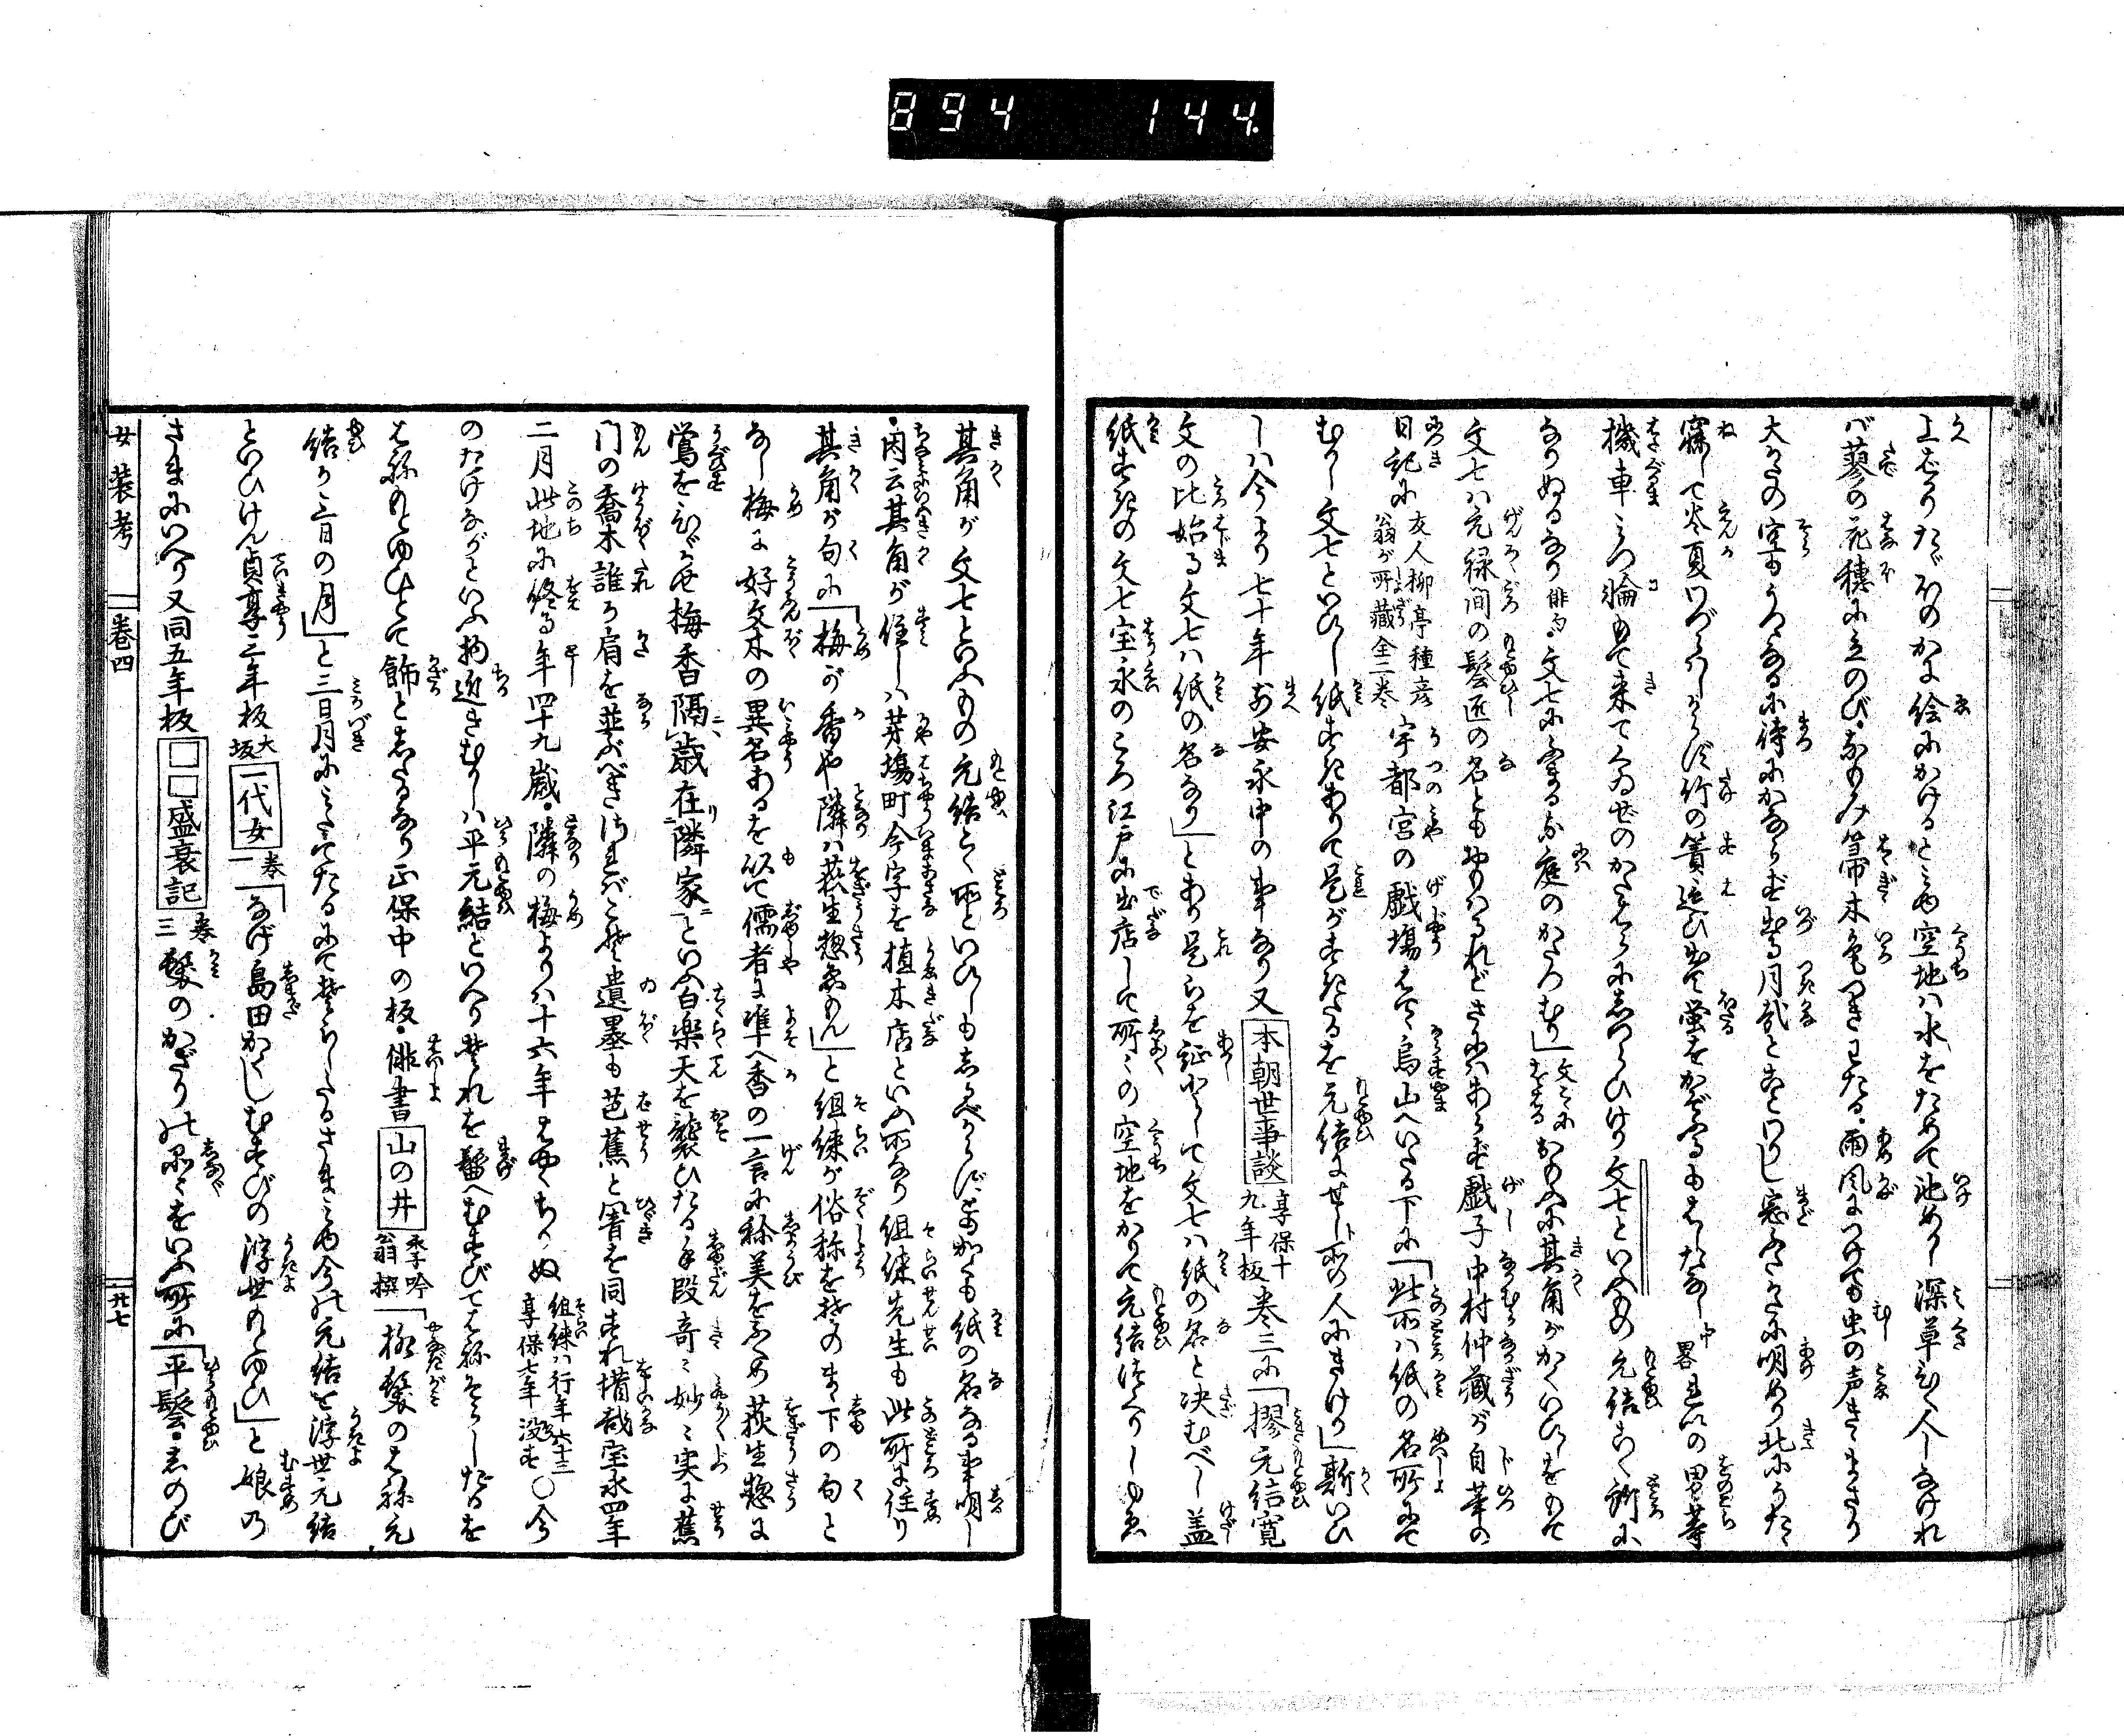 894 144.
上をりたゞほのかに絵にかけるとみゆ空地ハ水をためて池めく深草むら人しなけれ
バ蓼の花穂に立のび・なもみ箒木色つきわたる・雨風につけても虫の声きゝまさり
大かたの空もうつなるに待にかならず出る月哉とことわりし窓ふたつに明めり北にうたゝ
寐して冬夏いづくハしからず竹の簀延び出て蛍をかぞふるもはしたなし中畧それハの男等
機車三つ輪もて来てくゐぜのかたはらにしつらひけり文七といふもの元結こく所に
なりぬるなり俳句・文七にふまるな庭のかたつむり」文これにおもふに其角がかくいひしをもて
文七ハ元禄間の髻匠の名ともおもハるれどさにハあらず戯子中村仲蔵が自筆の
日記に友人柳亭種彦翁が所蔵全二巻宇都宮の戯場はてゝ烏山へいたる下に「此所ハ紙の名所にて
むかし文七といひし紙すきありて是がすきたるを元結にせしト所の人にきけり」斯いひ
しハ今より七十年前安永中の事なり又本朝世事談享保十九年板巻三に「摎元結寛
文の比始る文七ハ紙の名なり」とあり是らを証として文七ハ紙の名と决むべし盖
紙すきの文七宝永のころ江戸に出店して所〻の空地をかりて元結紙つくりしゆゑ
其角が文七といふもの元結こく所といひしもしるべからずともかくも紙の名なる事明し
・因云其角が住しハ茅場町今字を植木店といふ所なり徂徠先生も此所に住り
其角が句に「梅が香や隣ハ荻生惣右衛門」と徂徠が俗称を其のまゝ下の句と
なし梅に好文木の異名あるを以て儒者に準へ香の一言に称美をふくめ荻生惣に
鶯をひゞかせ梅香隔歳在隣家といふ白楽天を襲ひたる手段奇〻妙〻実に蕉
门の喬木誰か肩を並ぶべきされバこそ遺墨も芭蕉と価を同すれ措哉宝永四年
二月此地に終る年四十九歳・隣の梅よりハ十六年はやくちりぬ徂徠ハ行年六十三享保七年没す○今
のたけながといふ物近きむかしハ平元結といへりそれを髷へむすびてはねそらしたるを
はねもとゆひとて飾としたるなり正保中の板・俳書山の井季吟翁撰「柳髪のはね元
結か三日の月」と三日月にみたてたるにてそらしたるさまみゆ今の元結を浮世元結
といひけん貞享三年板大坂一代女巻一「なげ島田かくしむすびの浮世もとゆひ」と娘の
さまにいへり又同五年板□□盛衰記巻三髪のかざりの品〻をいふ所に「平髻・しのび
女装考 巻四 廿七